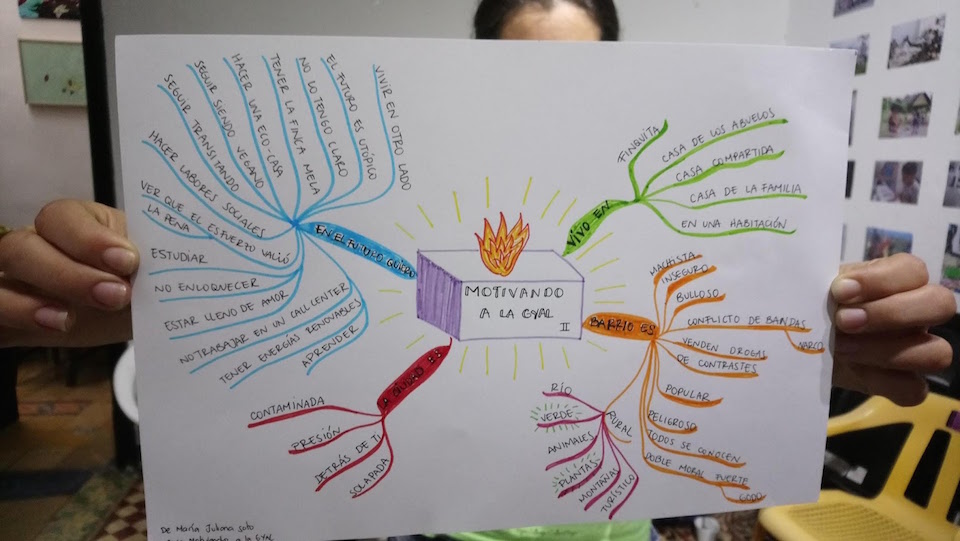 MOTIVANDO
A LA GYAL
II
EN EL FUTURO QUIERO
VIVIR EN OTRO LADO
EL FUTURO ES UTÓPICO
NO LO TENGO CLARO
TENER LA FINCA MELA
HACER UNA ECO-CASA
SEGUIR SIENDO VEGANO
SEGUIR TRANSITANDO
HACER LABORES SOCIALES
VER QUE EL ESFUERZO VALIÓ
LA PENA
ESTUDIAR
NO ENLOQUECER
ESTAR LLENO DE AMOR
NO TRABAJAR EN UN CALL CENTER
TENER ENERGÍAS RENOVABLES
APRENDER
VIVO EN
FINQUITA
CASA DE LOS ABUELOS
CASA COMPARTIDA
CASA DE LA FAMILIA
EN UNA HABITACIÓN
BARRIO ES
MACHISTA
INSEGURO
BULLOSO
CONFLICTO DE BANDAS
NARCO
VENDEN DROGAS
DE CONTRASTES
POPULAR
PELIGROSO
TODOS SE CONOCEN
DOBLE MORAL FUERTE
GODO
RURAL
RÍO
VERDE
ANIMALES
PLANTAS
MONTAÑAS
TURÍSTICO
CONTAMINADA
PRESIÓN
DETRÁS DE TI
SOLAPADA
De María Juliana Soto
Motivando a la GYAL